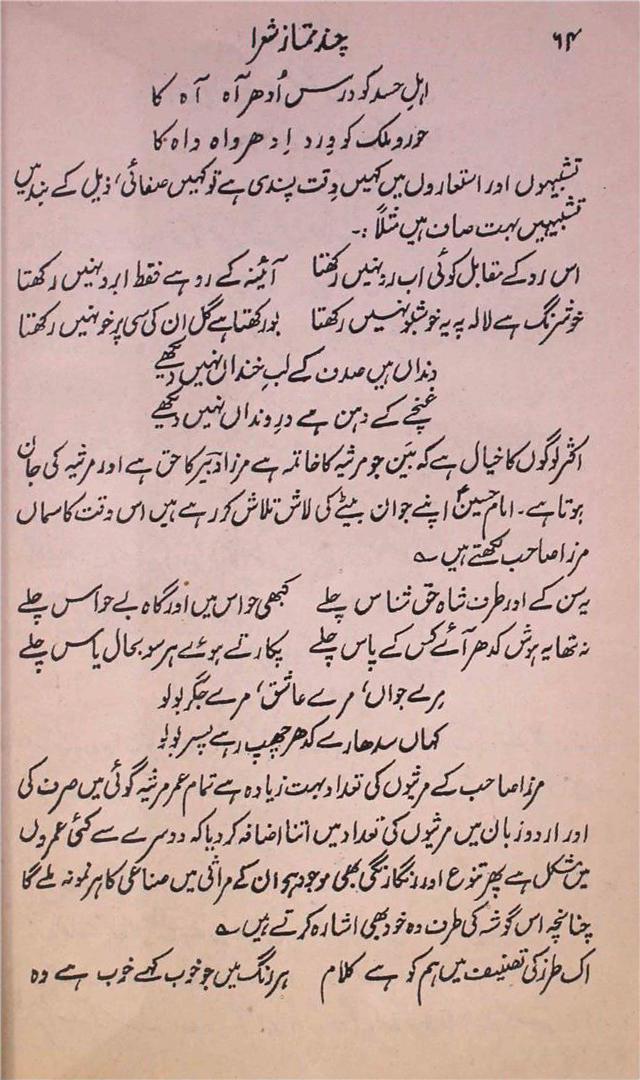 ۶۴ چند ممتاز شعرا
اہلِ حسد کو درس اُدھر آہ آہ کا
حور و ملک کو وِرد اِدھر واہ واہ کا
تشبیہوں اور استعاروں میں کہیں دِقت پسندی ہے تو کہیں صفائی، ذیل کے بند میں
تشبیہیں بہت صاف ہیں مثلاً :۔
اس رو کے مقابل کوئی اب رو نہیں رکھتا آئینہ کے رو ہے فقط ابرو نہیں رکھتا
خوشرنگ ہے لالہ پہ یہ خوشبو نہیں رکھتا بو رکھتا ہے گل ان کی سی پر خو نہیں رکھتا
دنداں ہیں صدف کے لبِ خنداں نہیں دیکھے
غنچے کے دہن ہے درِ دنداں نہیں دیکھے
اکثر لوگوں کا خیال ہے کہ بَین جو مرثیہ کا خاتمہ ہے مرزا دبیر کا حق ہے اور مرثیہ کی جان
ہوتا ہے۔ امام حسینؑ اپنے جوان بیٹے کی لاش تلاش کر رہے ہیں اس وقت کا سماں
مرزا صاحب لکھتے ہیں ؎
یہ سن کے اور طرف شاہ حق شناس چلے کبھی حواس میں اور گاہ بے حواس چلے
نہ تھا یہ ہوش کدھر آئے کس کے پاس چلے پکارتے ہوئے ہر سو بحال یاس چلے
مرے جواں، مرے عاشق، مرے جگر بولو
کہاں سدھارے کدھر چھپ رہے پسر بولو
مرزا صاحب کے مرثیوں کی تعداد بہت زیادہ ہے تمام عمر مرثیہ گوئی میں صرف کی
اور اردو زبان میں مرثیوں کی تعداد میں اتنا اضافہ کر دیا کہ دوسرے سے کئی عمروں
میں مشکل ہے پھر تنوع اور رنگا رنگی بھی موجود ہے ان کے مراثی میں صناعی کا ہر نمونہ ملے گا
چنانچہ اس گوشہ کی طرف وہ خود بھی اشارہ کرتے ہیں ؎
اک طرز کی تصنیف میں ہم کو ہے کلام ہر رنگ میں جو خوب کہے خوب ہے وہ